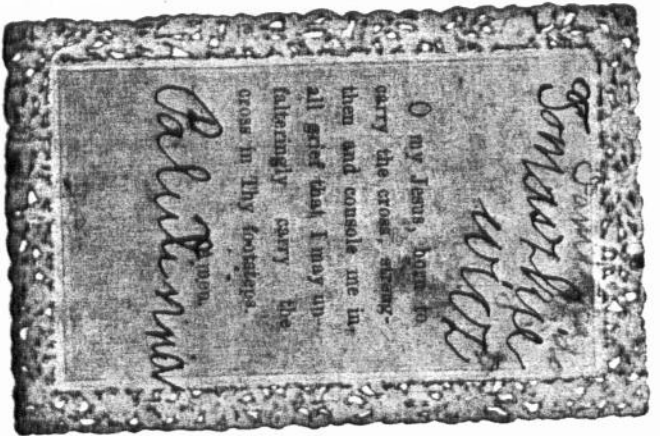 Tomaszkie
wicz
O my Jesus, to
carry the cross, streng-
then and console me in
all grief that I may un-
falteringly carry the
cross in Thy footsteps.
Amen.